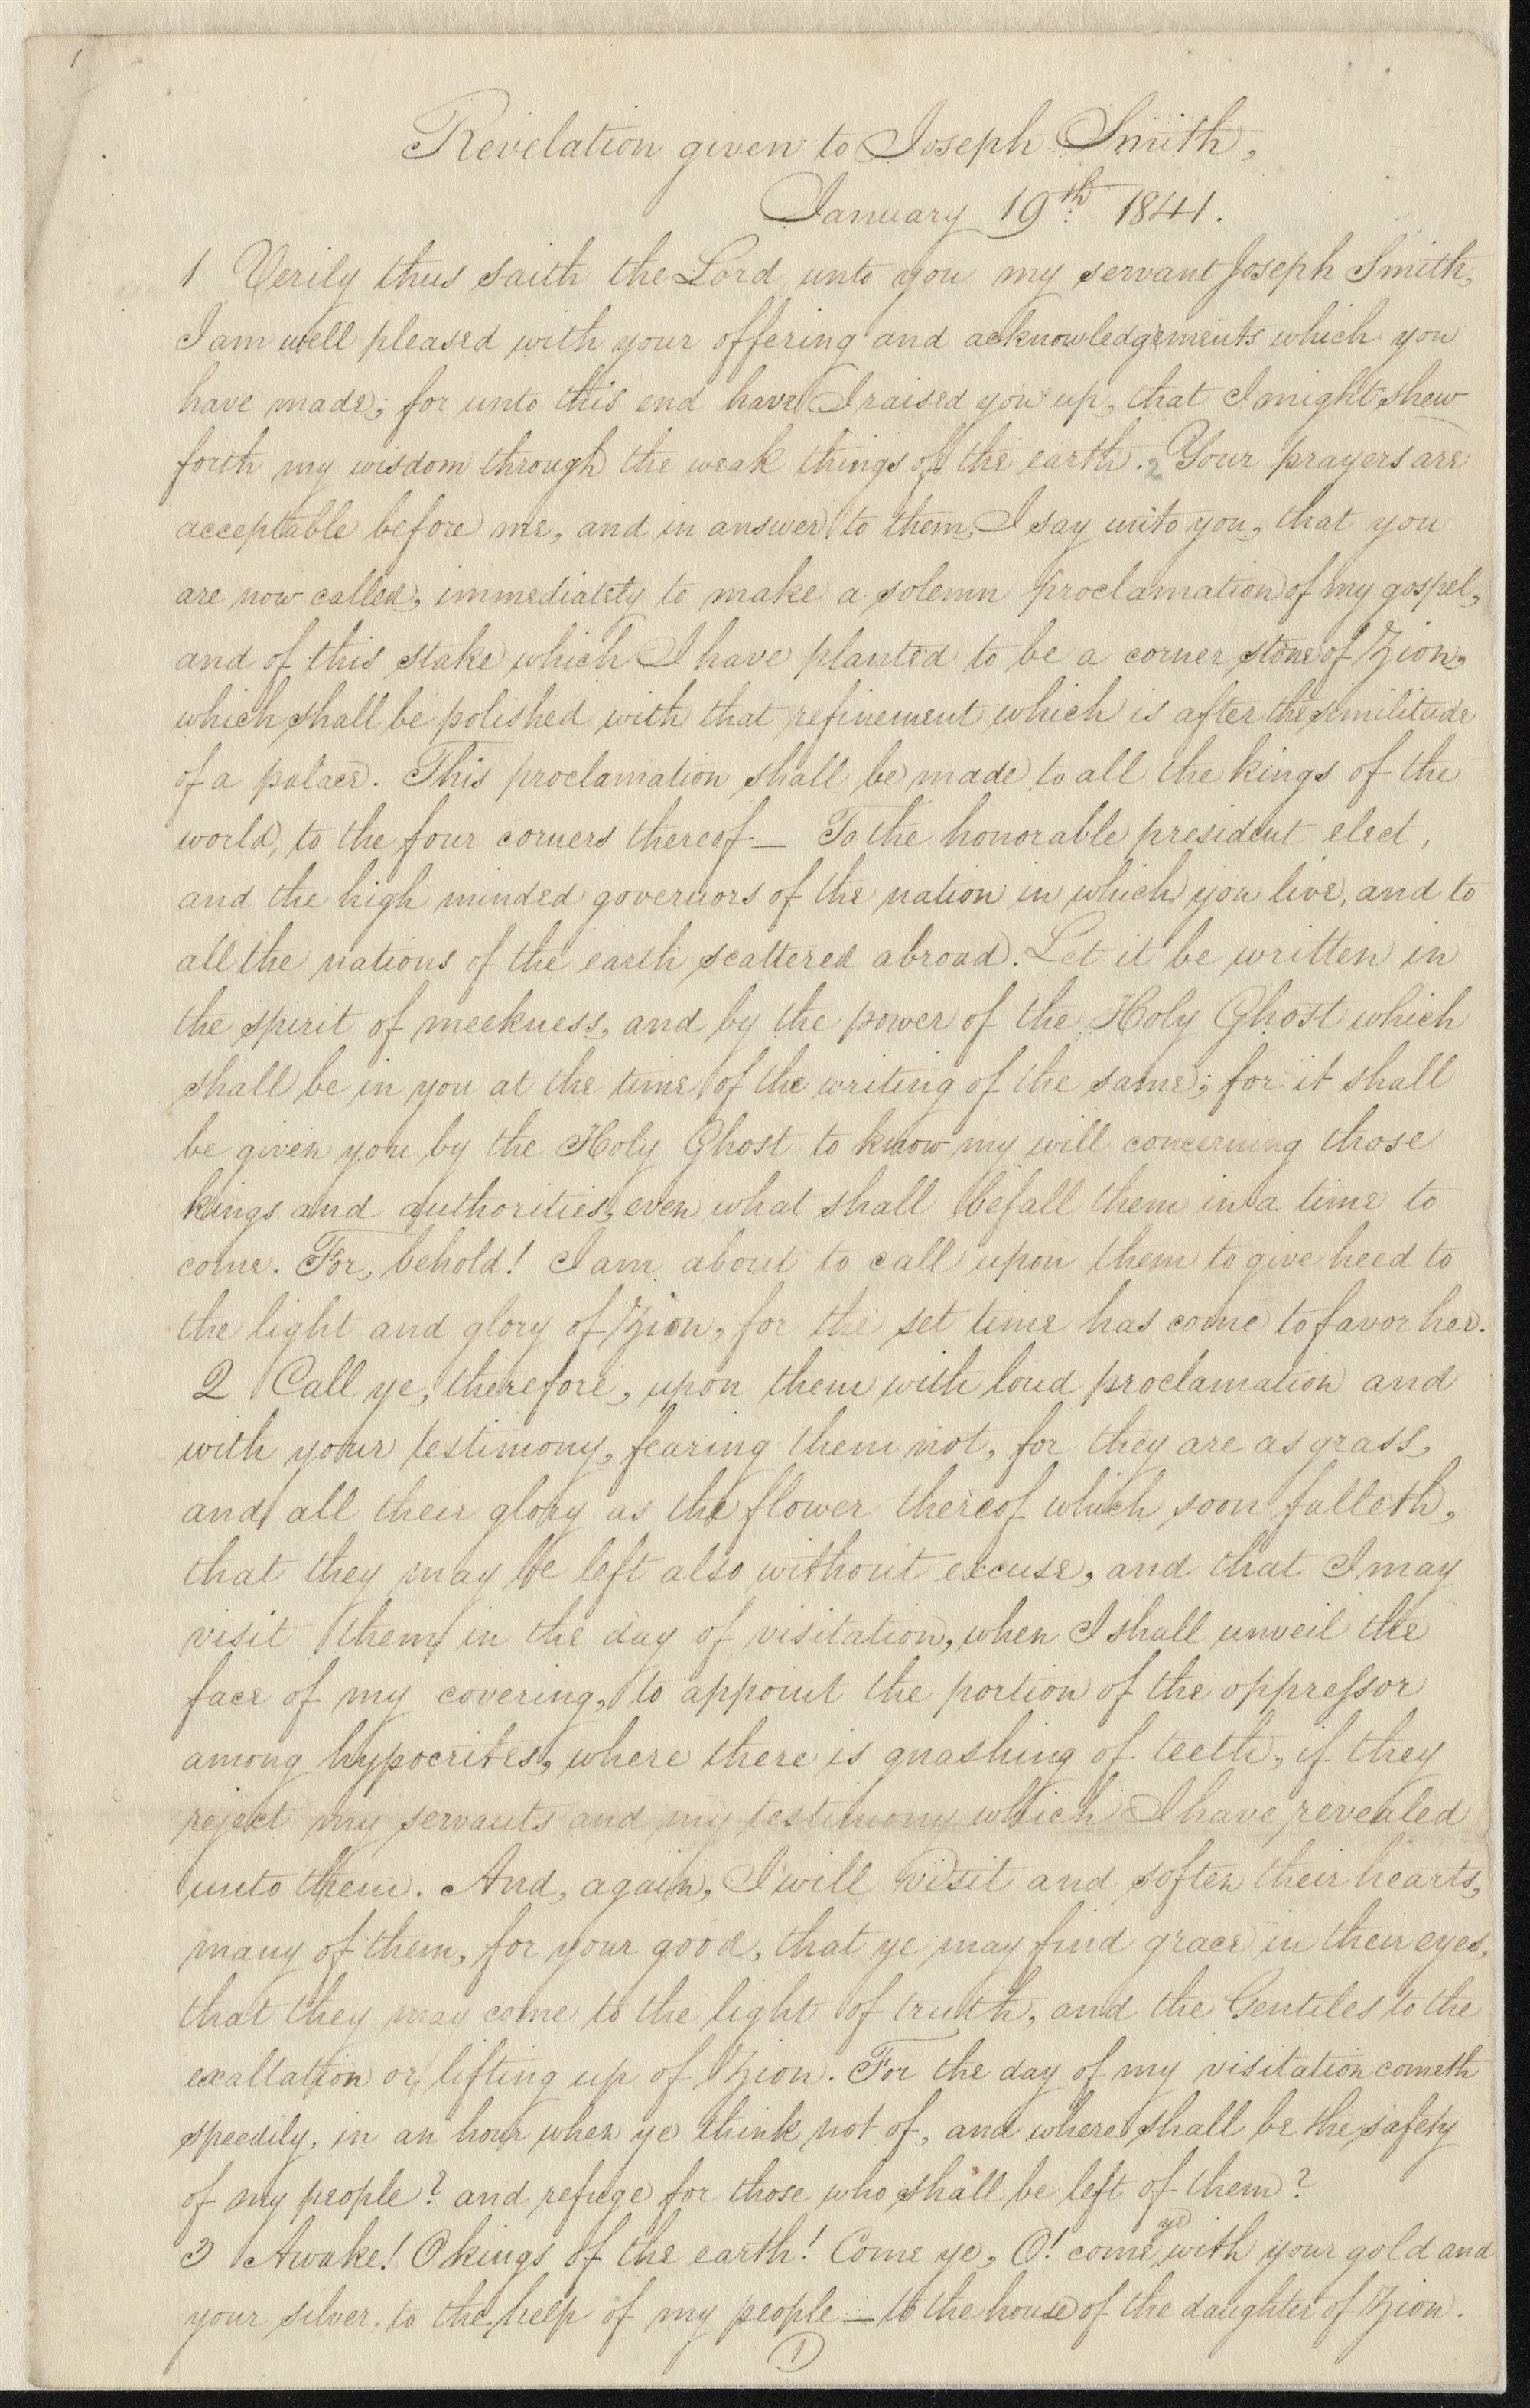 1
Revelation given to Joseph Smith,
January 19th 1841.
1 Verily thus saith the Lord, unto you my servant Joseph Smith,
I am well pleased with your offering and acknowledgements which you
have made; for unto this end have I raised you up, that I might shew
forth my wisdom through the weak things of the earth. 2 Your prayers are
acceptable before me, and in answer to them, I say unto you, that you
are now called, immediately to make a solemn proclamation of my gospel,
and of this stake which I have planted to be a corner stone of Zion,
which shall be polished with that refinement which is after the similitude
of a palace. This proclamation shall be made to all the kings of the
world, to the four corners thereof— To the honorable president elect,
and the high minded governors of the nation in which you live, and to
all the nations of the earth scattered abroad. Let it be written in
the spirit of meekness, and by the power of the Holy Ghost which
shall be in you at the time of the writing of the same; for it shall
be given you by the Holy Ghost to know my will concerning those
kings and authorities, even what shall befall them in a time to
come. For, behold! I am about to call upon them to give heed to
the light and glory of Zion, for the set time has come to favor her.
2 Call ye, therefore, upon them with loud proclamation and
with your testimony, fearing them not, for they are as grass,
and all their glory as the flower thereof which soon falleth,
that they may be left also without excuse, and that I may
visit them in the day of visitation, when I shall unveil the
face of my covering, to appoint the portion of the oppressor
among hypocrites, where there is gnashing of teeth, if they
reject my servants and my testimony which I have revealed
unto them. And, again, I will visit and soften their hearts,
many of them, for your good, that ye may find grace in their eyes,
that they may come to the light of truth, and the Gentiles to the
exaltation or lifting up of Zion. For the day of my visitation cometh
speedily, in an hour when ye think not of, and where shall be the safety
of my people? and refuge for those who shall be left of them?
3 Awake! O kings of the earth! Come ye, O! come ye with your gold and
your silver. to the help of my people — to the house of the daughter of Zion.
1